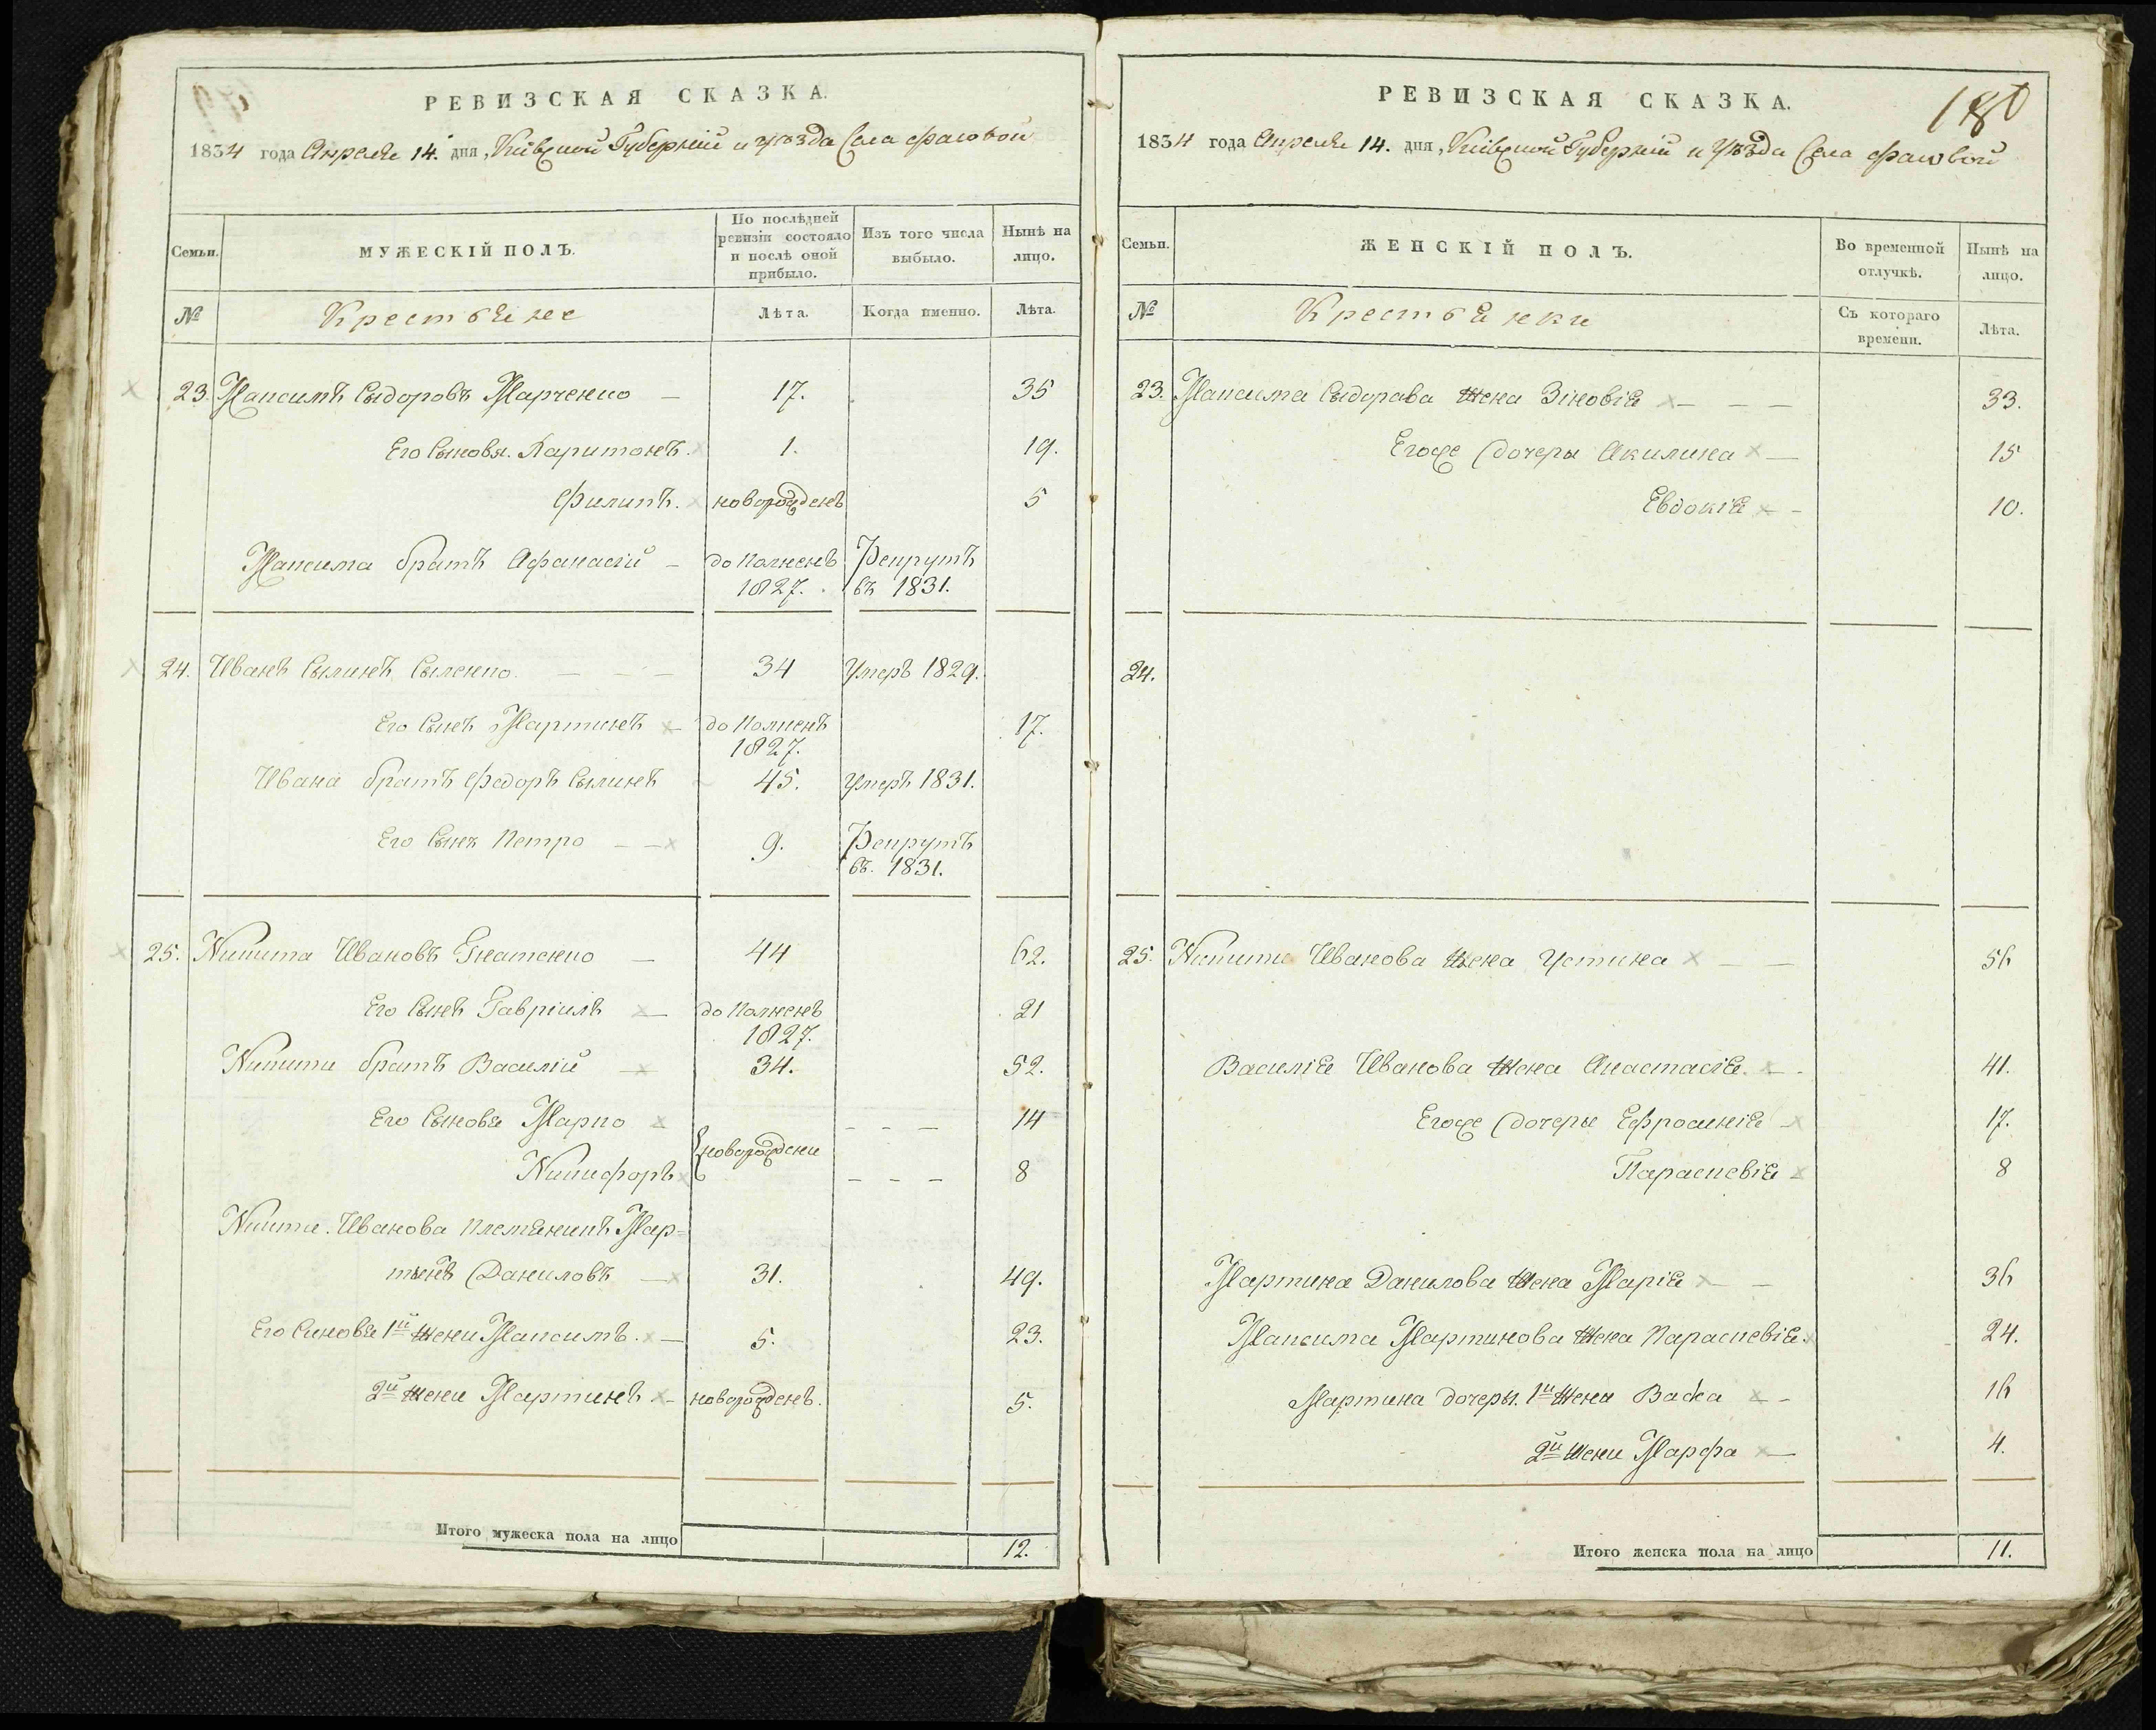 РЕВИЗСКАЯ СКАЗКА.
1834 года Апреля 14. дня, Кіевской Губерніи и уѣзда Села Фасовой
Семьи.
МУЖЕСКІЙ ПОЛЪ.
По послѣдней ревизіи состояло и послѣ оной прибыло.
Изъ того числа выбыло.
Нынѣ на лицо.
№
Крестьяне
Лѣта.
Когда именно.
Лѣта.
23. Максимъ Сыдоровъ Марченко — 17. 35
Его Сыновя. Харитонъ. 1. 19.
Филипъ. новорожденъ 5
Максима братъ Афанасій — до Полненъ Рекрутъ
1827. въ 1831.
24. Иванъ Сылинъ Сыленко. — — — 34 Умеръ 1829.
Его Сынъ Мартинъ — до Полненъ 17.
1827.
Ивана братъ Федоръ Сылинъ 45. Умеръ 1831.
Его Сынъ Петро — — 9. Рекрутъ
въ. 1831.
25. Никита Ивановъ Гнатенко — 44 62.
Его Сынъ Гавріилъ — до Полненъ 21
1827.
Никиты братъ Василій — 34. 52.
Его Сыновя Марко — — — 14
новорождени
Никифоръ — — — 8
Никиты. Иванова племяникъ Мар=
тынъ Даниловъ — 31. 49.
Его Синовя 1й жени Максимъ. — 5. 23.
2й жени Мартинъ — новорожденъ. 5.
Итого мужеска пола на лицо 12.
РЕВИЗСКАЯ СКАЗКА.
180
1834 года Апреля 14. дня, Кіевской Губерніи и Уѣзда Села Фасовой
Семьи.
ЖЕНСКІЙ ПОЛЪ.
Во временной отлучкѣ.
Нынѣ на лицо.
№
Крестьянки
Съ котораго времени.
Лѣта.
23. Максима Сыдорова жена Зіновія — — — 33.
Егоже дочеры Акилина — 15
Евдокія — 10.
24.
25. Никиты Иванова жена Устина — — 56
Василія Иванова жена Анастасія. — 41.
Егоже дочеры Ефросинія — 17.
Параскевія — 8
Мартина Данилова жена Марія — — 36
Максима Мартинова жена Параскевія. 24.
Мартина дочеры. 1й жены Васса — — 16
2й жени Марфа — 4.
Итого женска пола на лицо 11.